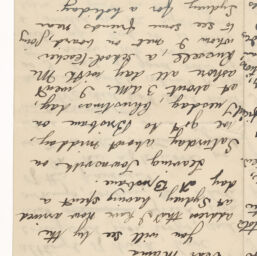 Dear Mama
You will see by the
address that I have now arrived
at Sydney having spent a
day at Brisbane.
Leaving Townsville on
Saturday about midday,
we got to Brisbane on
Tuesday, Christmas day,
at about 3 a.m. I went
ashore all day with Mr
Russell, a school teacher
whom I met on board going
to see some friends near
Sydney for a holiday.